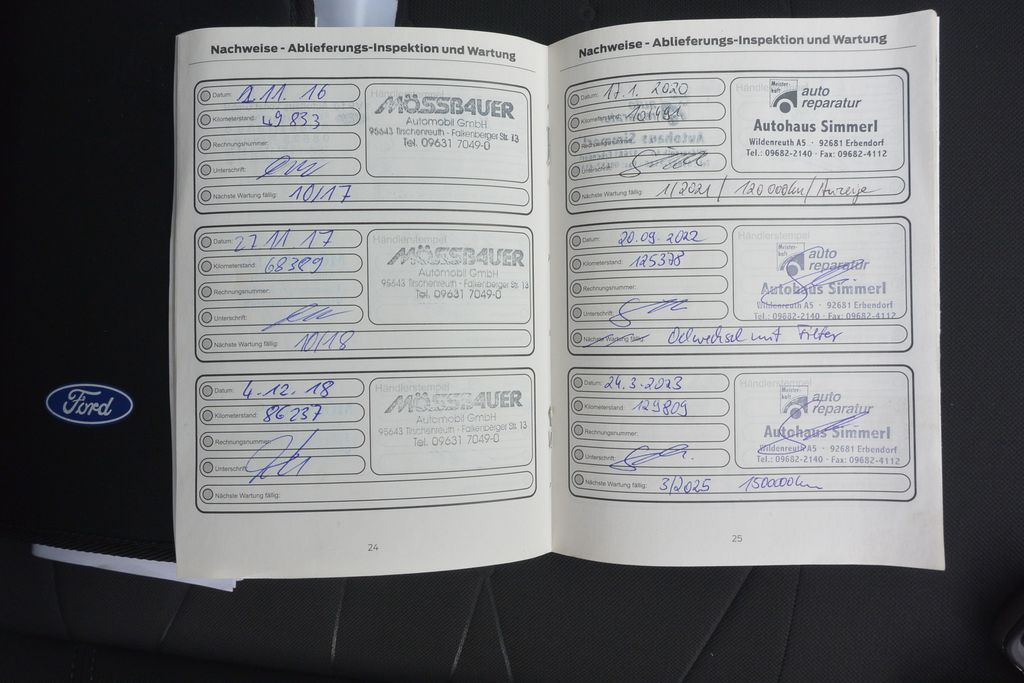 Nachweise - Ablieferungs-Inspektion und Wartung
Datum: 1.11. 16
Kilometerstand: 49 833
Rechnungsnummer:
Unterschrift:
Nächste Wartung fällig: 10/17
MÖSSBAUER
Automobil GmbH
95643 Tirschenreuth - Falkenberger Str. 13
Tel. 09631 7049-0
Datum: 27 11 17
Kilometerstand: 68389
Rechnungsnummer:
Unterschrift:
Nächste Wartung fällig: 10/18
Händlerstempel
MÖSSBAUER
Automobil GmbH
95643 Tirschenreuth - Falkenberger Str. 13
Tel. 09631 7049-0
Datum: 4.12.18
Kilometerstand: 86237
Rechnungsnummer:
Unterschrift:
Nächste Wartung fällig:
Händlerstempel
MÖSSBAUER
Automobil GmbH
95643 Tirschenreuth - Falkenberger Str. 13
Tel. 09631 7049-0
24
Nachweise - Ablieferungs-Inspektion und Wartung
Datum: 17.1. 2020
Kilometerstand: 101491
Unterschrift:
Nächste Wartung fällig: 1/2021 / 120 000km / Anzeige
Meister-
haft
auto
reparatur
Autohaus Simmerl
Wildenreuth A5 · 92681 Erbendorf
Tel.: 09682-2140 · Fax: 09682-4112
Datum: 20.09.2022
Kilometerstand: 125378
Rechnungsnummer:
Unterschrift:
Nächste Wartung fällig: Oelwechsel mit Filter
Händlerstempel
Meister-
haft
auto
reparatur
Autohaus Simmerl
Wildenreuth A5 · 92681 Erbendorf
Tel.: 09682-2140 · Fax: 09682-4112
Datum: 24.3.2023
Kilometerstand: 129809
Rechnungsnummer:
Unterschrift:
Nächste Wartung fällig: 3/2025 150000km
Händlerstempel
Meister-
haft
auto
reparatur
Autohaus Simmerl
Wildenreuth A5 · 92681 Erbendorf
Tel.: 09682-2140 · Fax: 09682-4112
25
Ford